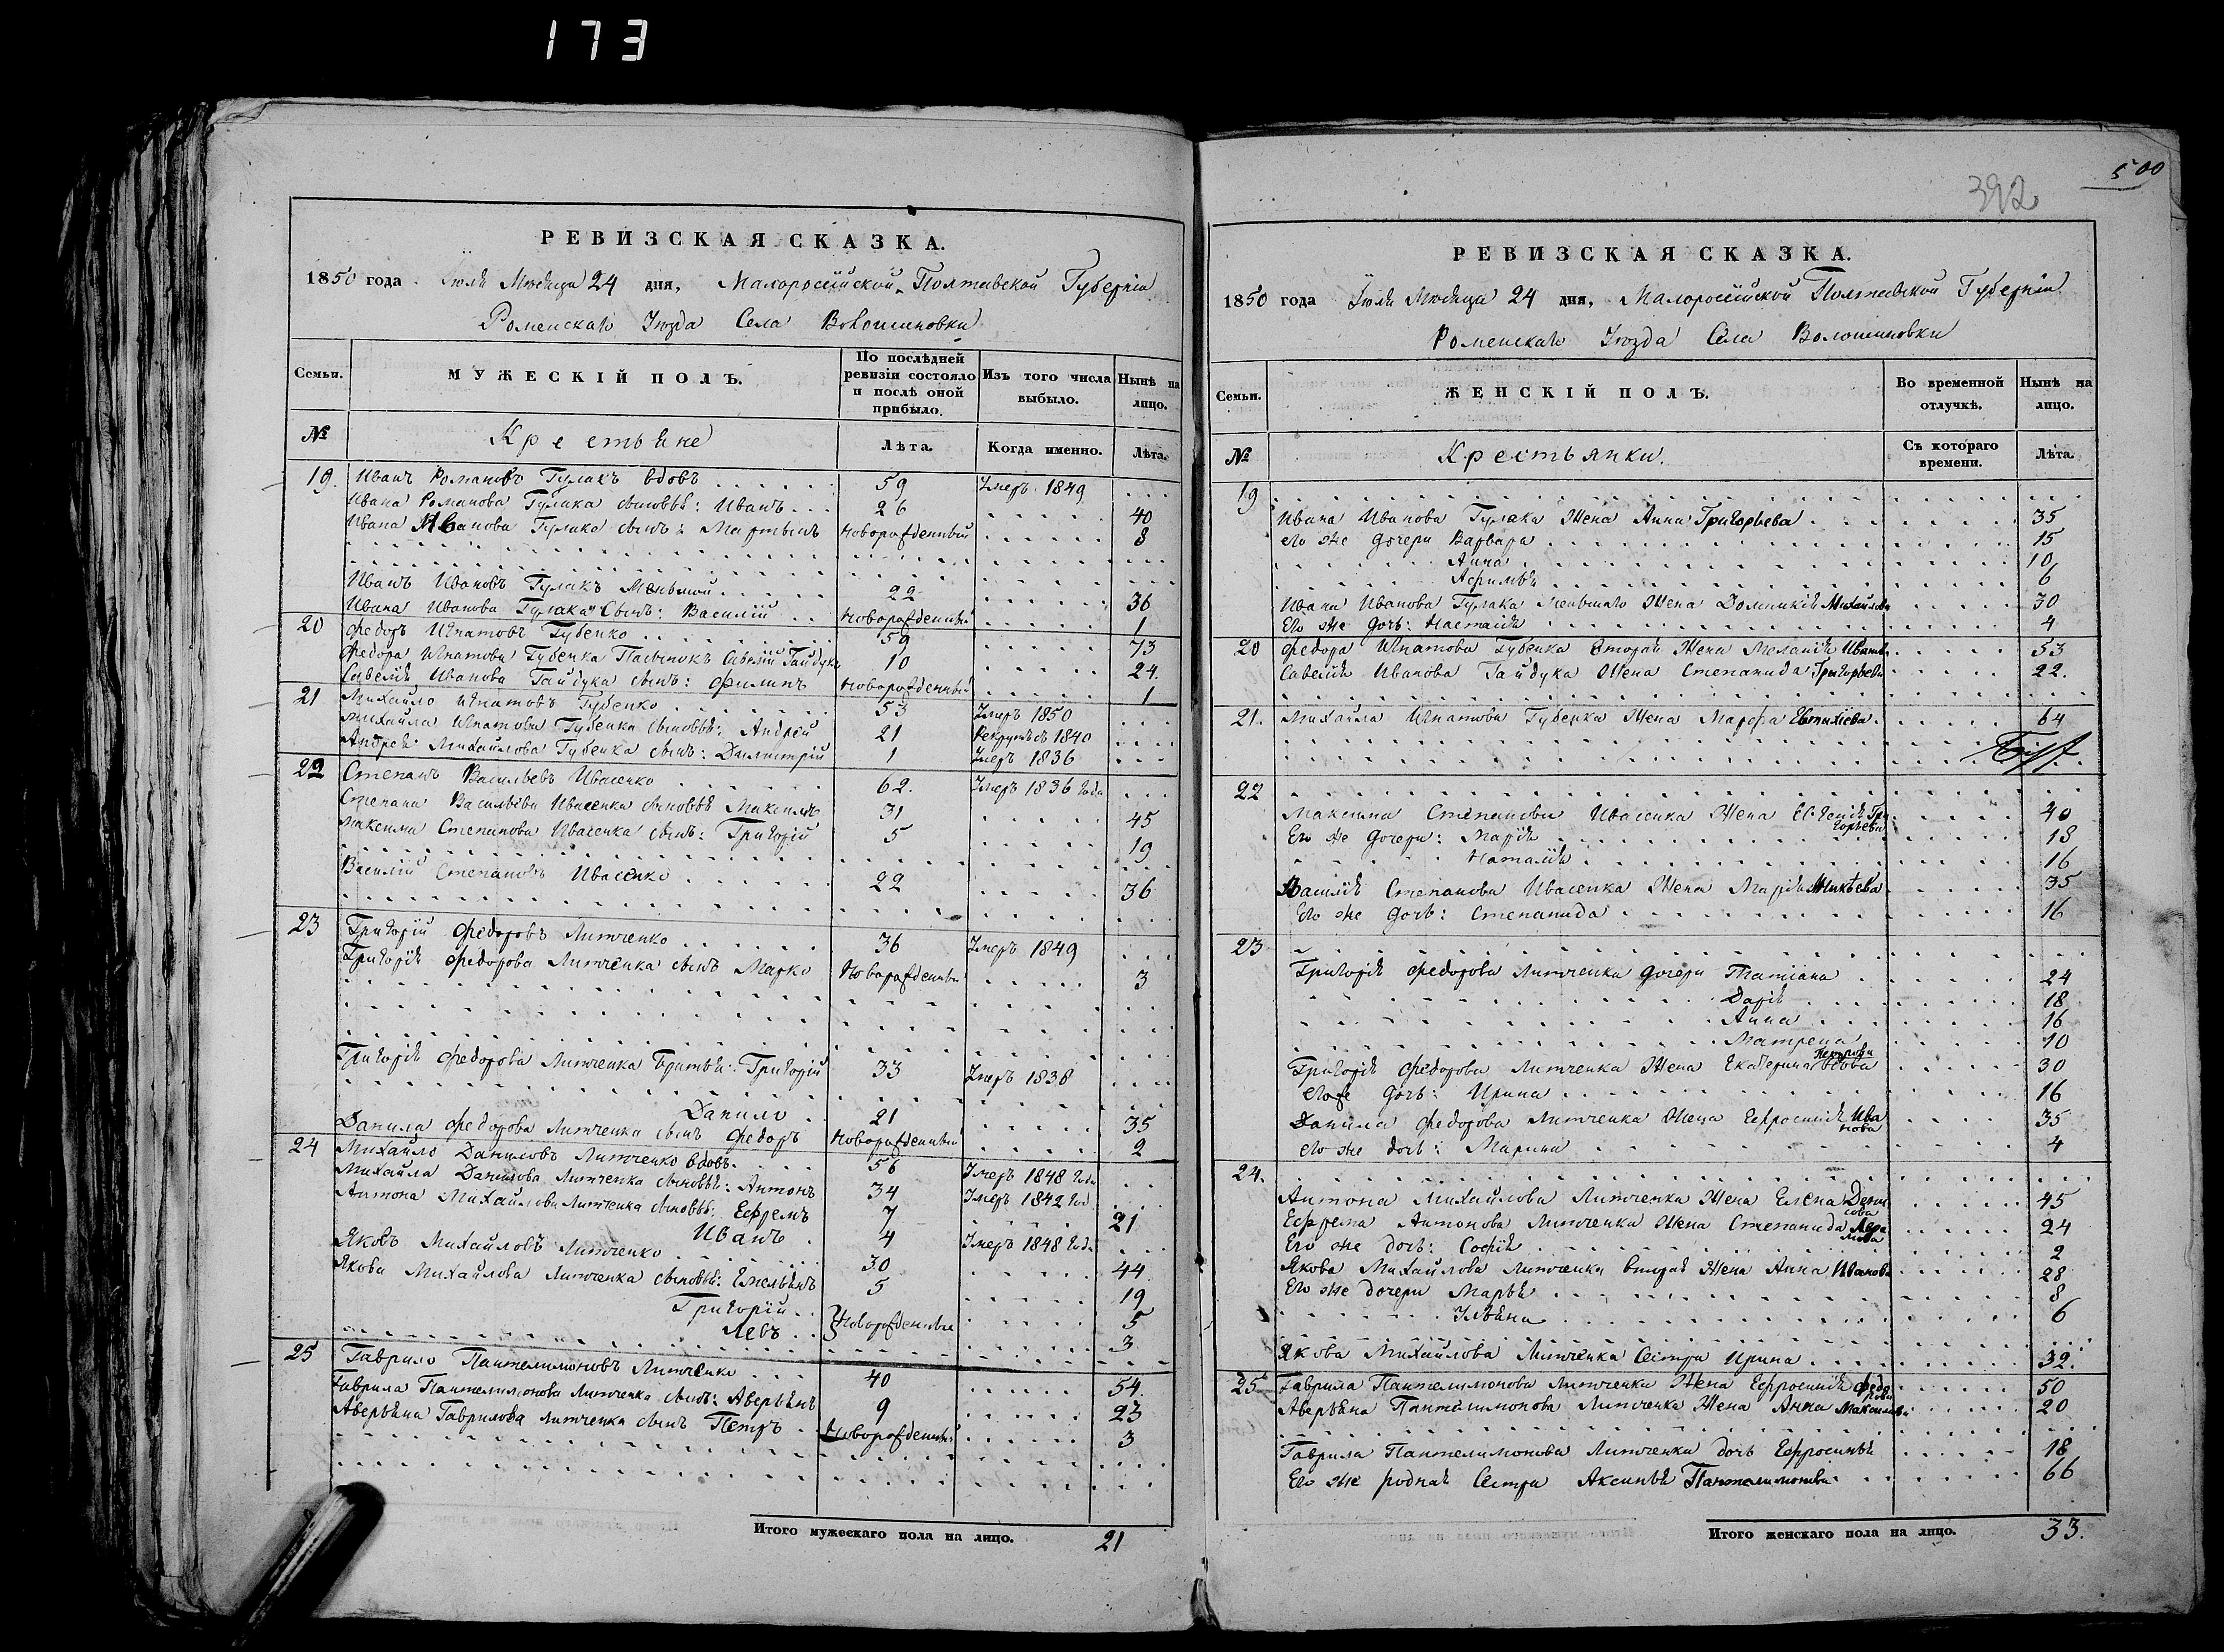 173
РЕВИЗСКАЯ СКАЗКА.
1850 года Іюля Мѣсяца 24 дня, Малоросійской Полтавской Губерніи
Роменскаго Уѣзда Села Волошиновки
Семьи.
МУЖЕСКІЙ ПОЛЪ.
По послѣдней ревизіи состояло и послѣ оной прибыло.
Изъ того числа выбыло.
Нынѣ на лицо.
№
Крестьяне
Лѣта.
Когда именно.
Лѣта.
19. Иванъ Романовъ Гулакъ вдовъ 59 Умеръ 1849
Ивана Романова Гулака сыновья: Иванъ 26 40
Ивана Иванова Гулака сынъ: Мартынъ Новорожденный 8
Иванъ Ивановъ Гулакъ Меньшой 22 36
Ивана Иванова Гулака Сынъ: Василій Новорожденный 1
20 Федоръ Игнатовъ Губенко 59 73
Федора Игнатова Губенка Пасынокъ Савелій Гайдука 10 24.
Савелія Иванова Гайдука сынъ: Филипъ Новорожденный 1
21 Михайло Игнатовъ Губенко 53 Умеръ 1850
Михайла Игнатова Губенка сыновья: Андрей 21 Рекрутъ въ 1840
Андрея Михайлова Губенка сынъ: Димитрій 1 Умеръ 1836
22 Степанъ Васильевъ Ивасенко 62. Умеръ 1836 года
Степана Васильева Ивасенка сыновья Максимъ 31 45
Максима Степанова Ивасенка сынъ: Григорій 5 19
Василій Степановъ Ивасенко 22 36
23 Григорій Федоровъ Литченко 36 Умеръ 1849
Григорія Федорова Литченка сынъ Марко Новорожденный 3
Григорія Федорова Литченка Братья: Григорій 33 Умеръ 1838
Данило 21 35
Данила Федорова Литченка сынъ Федоръ Новорожденный 2
24 Михайло Даниловъ Литченко вдовъ 56 Умеръ 1848 года
Михайла Данилова Литченка сыновья: Антонъ 34 Умеръ 1842 год
Антона Михайлова Литченка сыновья: Ефремъ 7 21
Иванъ 4 Умеръ 1848 года
Яковъ Михайловъ Литченко 30 44
Якова Михайлова Литченка сыновья: Емельянъ 5 19
Григорій 5
Левъ Новорожденные 3
25 Гаврило Пантелимоновъ Литченко 40 54.
Гаврила Пантелимонова Литченка сынъ: Аверьянъ 9 23
Аверьяна Гаврилова Литченка сынъ Петръ Новорожденный 3
Итого мужескаго пола на лицо. 21
500
392
РЕВИЗСКАЯ СКАЗКА.
1850 года Іюля Мѣсяца 24 дня, Малоросійской Полтавской Губерніи
Роменскаго Уѣзда Села Волошиновки
Семьи.
ЖЕНСКІЙ ПОЛЪ.
Во временной отлучкѣ.
Нынѣ на лицо.
№
Крестьянки.
Съ котораго времени.
Лѣта.
19
Ивана Иванова Гулака Жена Анна Григорьева 35
его же дочери Варвара 15
Анна 10
Афимья 6
Ивана Иванова Гулака меньшаго Жена Домникія Михайлова 30
Его же дочь: Настасія 4
20 Федора Игнатова Губенка вторая Жена Меланія Иванова 53
Савелія Иванова Гайдука Жена Степанида Григорьева 22.
21. Михайла Игнатова Губенка Жена Марфа Евтихіева 64
22
Максима Степанова Ивасенка Жена Евгенія Григорьева 40
Его же дочери: Марія 18
Наталія 16
Василія Степанова Ивасенка Жена Марія Микѣева 35
Его же дочь: Степанида 16
23
Григорія Федорова Литченка дочери Татіана 24
Дарія 18
Анна 16
Матрена 10
Григорія Федорова Литченка Жена Екатерина Петрова вдова 30
его же дочь: Ирина 16
Данила Федорова Литченка Жена Ефросинія Иванова 35
его же дочь: Марина 4
24.
Антона Михайлова Литченка Жена Елена Денисова 45
Ефрема Антонова Литченка Жена Степанида 24
Его же дочь: Софія 2
Якова Михайлова Литченка вторая Жена Анна Иванова 28
Его же дочери Марья 8
Ульяна 6
Якова Михайлова Литченка Сестра Ирина 32.
25 Гаврила Пантелимонова Литченка Жена Ефросинія Федорова 50
Аверьяна Пантелимонова Литченка Жена Анна Максимова 20
Гаврила Пантелимонова Литченка дочь Ефросинья 18
Его же родная Сестра Аксинья Пантелимонова 66
Итого женскаго пола на лицо. 33.